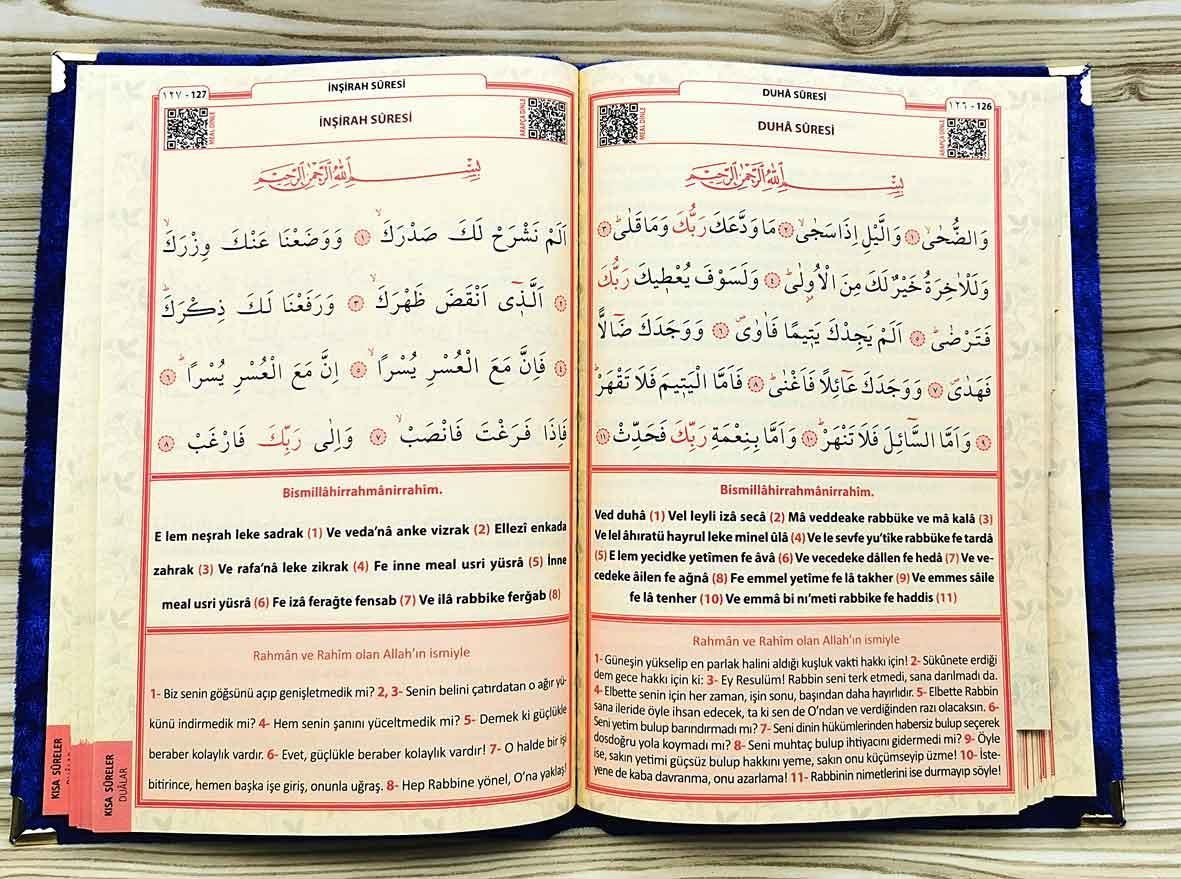 DUHÂ SÛRESİ
١٢٦ - 126
MEAL DİNLE
DUHÂ SÛRESİ
ARAPÇA DİNLE
بِسْمِ اللّٰهِ الرَّحْمٰنِ الرَّحِيمِ
وَالضُّحٰىۙ ﴿١﴾ وَالَّيْلِ اِذَا سَجٰىۙ ﴿٢﴾ مَا وَدَّعَكَ رَبُّكَ وَمَا قَلٰىۜ ﴿٣﴾
وَلَلْاٰخِرَةُ خَيْرٌ لَكَ مِنَ الْاُولٰىۜ ﴿٤﴾ وَلَسَوْفَ يُعْط۪يكَ رَبُّكَ
فَتَرْضٰىۜ ﴿٥﴾ اَلَمْ يَجِدْكَ يَت۪يمًا فَاٰوٰىۖ ﴿٦﴾ وَوَجَدَكَ ضَٓالًّا
فَهَدٰىۖ ﴿٧﴾ وَوَجَدَكَ عَٓائِلًا فَاَغْنٰىۜ ﴿٨﴾ فَاَمَّا الْيَت۪يمَ فَلَا تَقْهَرْۜ
﴿٩﴾ وَاَمَّا السَّٓائِلَ فَلَا تَنْهَرْۜ ﴿١٠﴾ وَاَمَّا بِنِعْمَةِ رَبِّكَ فَحَدِّثْ ﴿١١﴾
Bismillâhirrahmânirrahîm.
Ved duhâ (1) Vel leyli izâ secâ (2) Mâ veddeake rabbüke ve mâ kalâ (3)
Ve lel âhıratü hayrul leke minel ûlâ (4) Ve le sevfe yu'tike rabbüke fe tardâ
(5) E lem yecidke yetîmen fe âvâ (6) Ve vecedeke dâllen fe hedâ (7) Ve ve-
cedeke âilen fe ağnâ (8) Fe emmel yetîme fe lâ takher (9) Ve emmes sâile
fe lâ tenher (10) Ve emmâ bi nı'meti rabbike fe haddis (11)
Rahmân ve Rahîm olan Allah'ın ismiyle
1- Güneşin yükselip en parlak halini aldığı kuşluk vakti hakkı için! 2- Sükûnete erdiği
dem gece hakkı için ki: 3- Ey Resulüm! Rabbin seni terk etmedi, sana darılmadı da.
4- Elbette senin için her zaman, işin sonu, başından daha hayırlıdır. 5- Elbette Rabbin
sana ileride öyle ihsan edecek, ta ki sen de O'ndan ve verdiğinden razı olacaksın. 6-
Seni yetim bulup barındırmadı mı? 7- Seni dinin hükümlerinden habersiz bulup seçerek
dosdoğru yola koymadı mı? 8- Seni muhtaç bulup ihtiyacını gidermedi mi? 9- Öyle
ise, sakın yetimi güçsüz bulup hakkını yeme, sakın onu küçümseyip üzme! 10- İste-
yene de kaba davranma, onu azarlama! 11- Rabbinin nimetlerini ise durmayıp söyle!
İNŞİRAH SÛRESİ
١٢٧ - 127
MEAL DİNLE
İNŞİRAH SÛRESİ
ARAPÇA DİNLE
بِسْمِ اللّٰهِ الرَّحْمٰنِ الرَّحِيمِ
اَلَمْ نَشْرَحْ لَكَ صَدْرَكَۙ ﴿١﴾ وَوَضَعْنَا عَنْكَ وِزْرَكَۙ
﴿٢﴾ اَلَّذ۪ٓي اَنْقَضَ ظَهْرَكَۙ ﴿٣﴾ وَرَفَعْنَا لَكَ ذِكْرَكَۜ
﴿٤﴾ فَاِنَّ مَعَ الْعُسْرِ يُسْرًاۙ ﴿٥﴾ اِنَّ مَعَ الْعُسْرِ يُسْرًاۜ ﴿٦﴾
فَاِذَا فَرَغْتَ فَانْصَبْۙ ﴿٧﴾ وَاِلٰى رَبِّكَ فَارْغَبْ ﴿٨﴾
Bismillâhirrahmânirrahîm.
E lem neşrah leke sadrak (1) Ve veda'nâ anke vizrak (2) Ellezî enkada
zahrak (3) Ve rafa'nâ leke zikrak (4) Fe inne meal usri yüsrâ (5) İnne
meal usri yüsrâ (6) Fe izâ ferağte fensab (7) Ve ilâ rabbike ferğab (8)
Rahmân ve Rahîm olan Allah'ın ismiyle
1- Biz senin göğsünü açıp genişletmedik mi? 2, 3- Senin belini çatırdatan o ağır yü-
künü indirmedik mi? 4- Hem senin şanını yüceltmedik mi? 5- Demek ki güçlükle
beraber kolaylık vardır. 6- Evet, güçlükle beraber kolaylık vardır! 7- O halde bir işi
bitirince, hemen başka işe giriş, onunla uğraş. 8- Hep Rabbine yönel, O'na yaklaş!
KISA SÛRELER
KISA SÛRELER
DUÂLAR